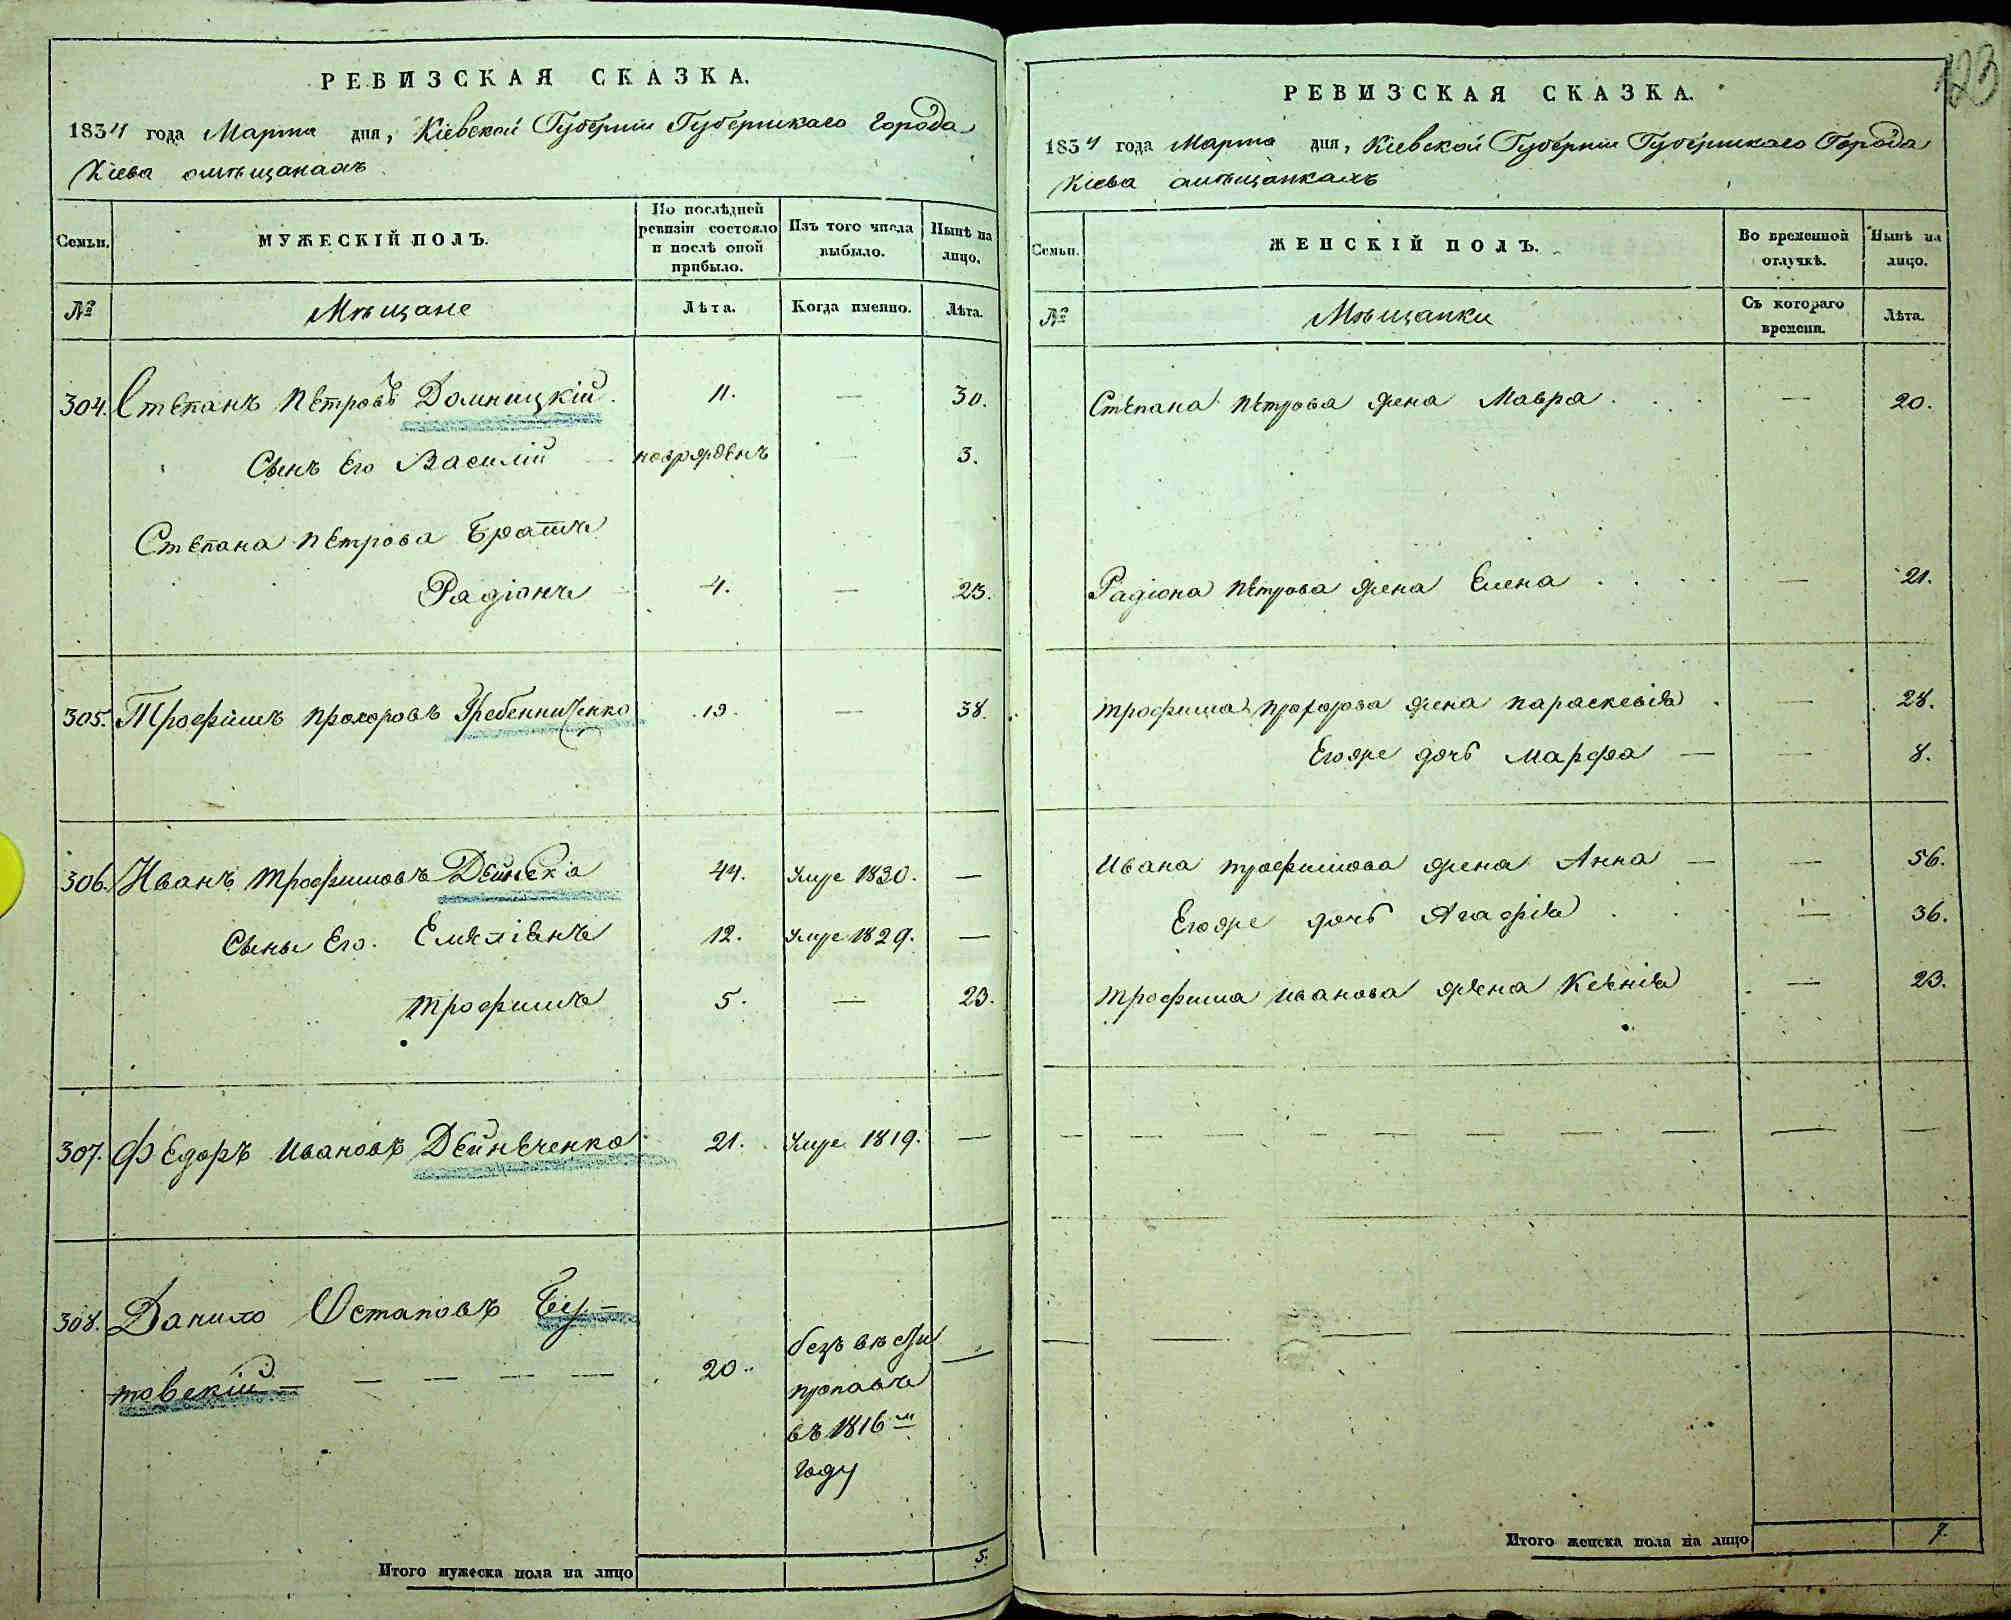 РЕВИЗСКАЯ СКАЗКА.
1834 года Марта дня, Кіевской Губерніи Губернскаго Города
Кіева омѣщанахъ
Семьи.
МУЖЕСКІЙ ПОЛЪ.
По послѣдней
ревизіи состояло
и послѣ оной
прибыло.
Изъ того числа
выбыло.
Нынѣ на
лицо.
№
Мѣщане
Лѣта.
Когда именно.
Лѣта.
304. Степанъ Петровъ Домницкій. 11. — 30.
Сынъ Его Василій — новрожденъ — 3.
Степана Петрова Братъ
Радіонъ — 4. — 23.
305. Трофимъ Прохоровъ Гребенниченко 19. — 38.
306. Иванъ Трофимовъ Дейнека 44. Умре 1830. —
Сыны Его. Емеліянъ 12. Умре 1829. —
Трофимъ 5. — 23.
307. Федоръ Ивановъ Дейнеченко 21. Умре 1819. —
308. Данило Остаповъ Бу-
товскій — — — — — 20. безъ вѣсти —
пропавъ
въ 1816 м
году
Итого мужеска пола на лицо 5.
123
РЕВИЗСКАЯ СКАЗКА.
1834 года Марта дня, Кіевской Губерніи Губернскаго Города
Кіева омѣщанкахъ
Семьи.
ЖЕНСКІЙ ПОЛЪ.
Во временной
отлучкѣ.
Нынѣ на
лицо.
№
Мѣщанки
Съ котораго
времени.
Лѣта.
Степана Петрова жена Мавра . . . — 20.
Радіона Петрова жена Елена . . . . — 21.
Трофима Прохорова жена Параскевія . — 28.
Егожре дочь Марфа — — 8.
Ивана Трофимова жена Анна — — 56.
Егожре дочь Агафія . . — 36.
Трофима Иванова жена Ксенія . — 23.
— — — — — — — — — — — —
— — — — — —
Итого женска пола на лицо 7.